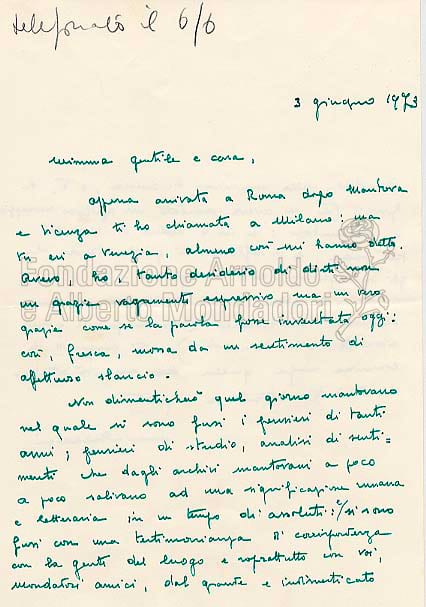 telefonato il 6/6
3 giugno 1973
Mimma gentile e cara,
appena arrivata a Roma dopo Mantova
e Vicenza ti ho chiamata a Milano: ma
tu eri a Venezia, almeno così mi hanno detto
Avevo, ho, tanto desiderio di dirti non
un grazie vagamente espressivo ma un vero
grazie come se la parola fosse inventata oggi:
così, fresca, mossa da un sentimento di
affettuoso slancio.
Non dimenticherò quel giorno mantovano
nel quale si sono fusi i pensieri di tanti
anni; pensieri di studio, analisi di senti=
menti che dagli archivi mantovani a poco
a poco salivano ad una significazione umana
e letteraria in un tempo di assoluti: e si sono
fusi con una testimonianza di corrispondenza
con la gente del luogo e soprattutto con voi,
mondatori amici, dal grande e indimenticato
Fondazione Arnoldo
e Alberto Mondadori